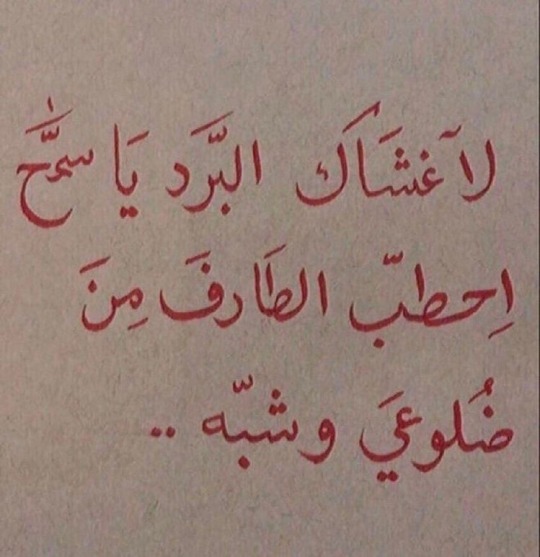 لآ غشَاَك البَّرَد يَا سمَّح
اِحطبّ الطَارفَ مِنَ
ضُلوعيَ وشبّه ..